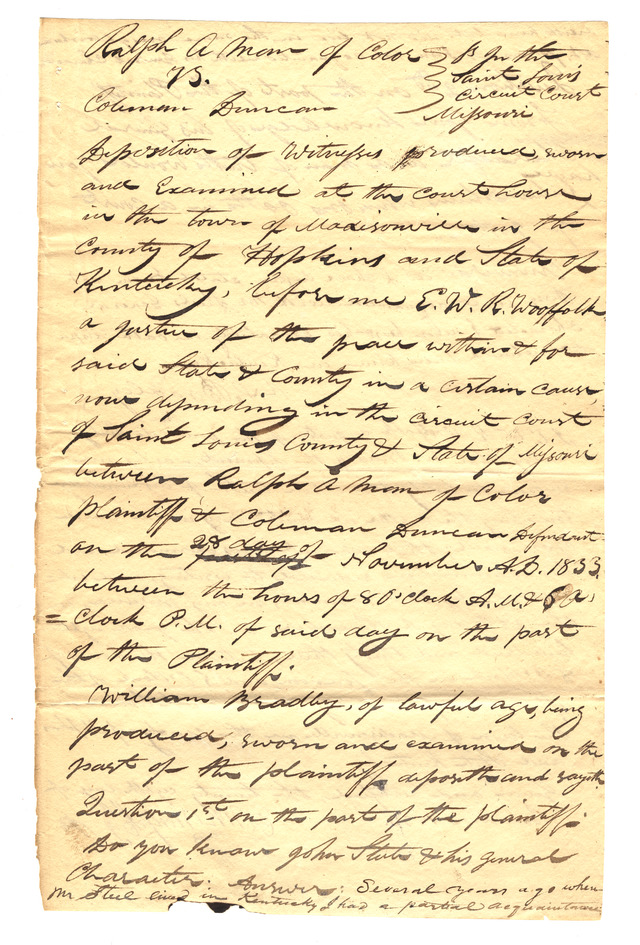 Ralph A Man of Color } In the
vs. } Saint Louis
Circuit Court
Coleman Duncan } Missouri
Deposition of Witnesses produced, sworn
and Examined at the Court house
in the town of Madisonville in the
County of Hopkins and State of
Kentucky, before me E. W. R. Wooffolk
a justice of the peace within & for
said State & County in a certain cause,
now depending in the circuit Court
of Saint Louis County & State of Missouri
between Ralph A Man of Color
plaintiff & Coleman Duncan Defendant
on the 28 day of November A.D. 1833.
between the hours of 8 O'clock A.M. & 6 O
= Clock P.M. of said day on the part
of the Plaintiff.
William Bradby, of lawful age, being
produced, sworn and examined on the
part of the plaintiff deposeth and sayeth
Question 1st on the part of the plaintiff.
Do you know John & his general
Character. Answer: Several years ago when
Mr Steel lived in Kentucky I had a partial acquaintance